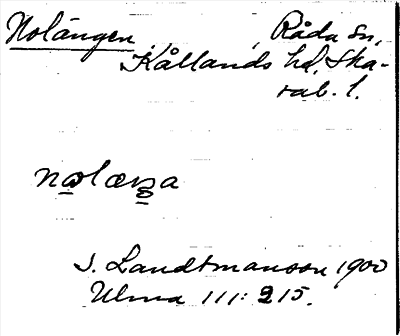 Nolängen, Råda sn,
Kållands hd, Ska-
rab. l.
nolæŋa
S. Landtmanson 1900
Ulma 111: 215.